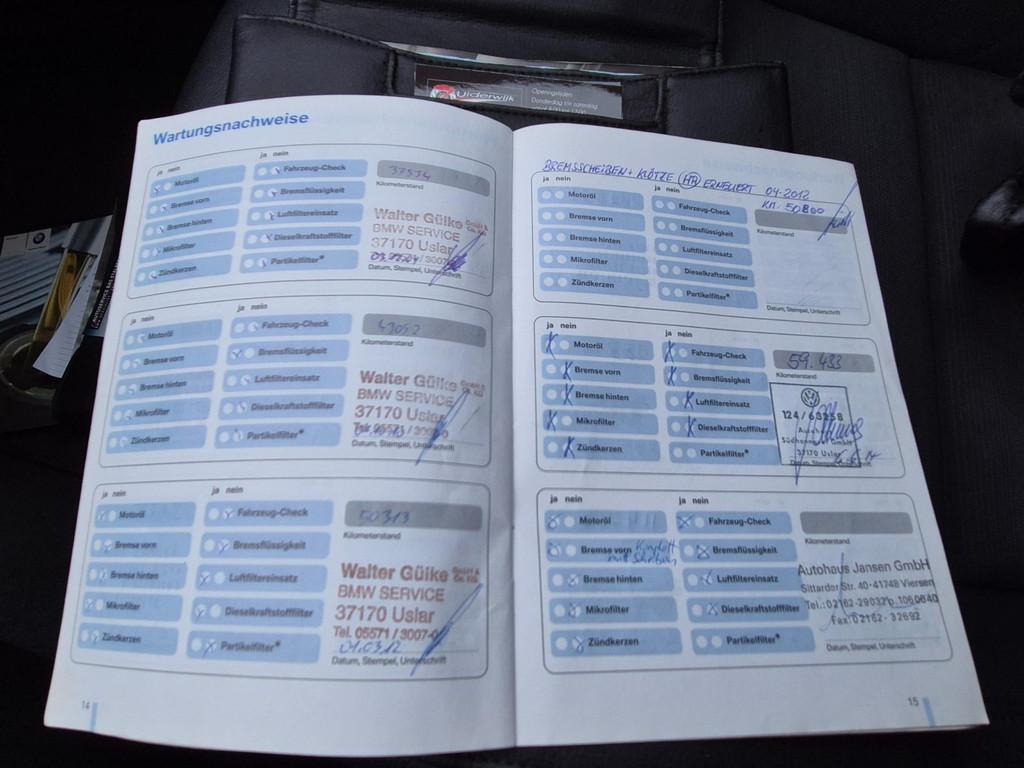 Uiderwijk
Openingstijden
Donderdag t/m zaterdag
Wartungsnachweise
ja nein
ja nein
Motoröl
Bremse vorn
Bremse hinten
Mikrofilter
Zündkerzen
Fahrzeug-Check
Bremsflüssigkeit
Luftfiltereinsatz
Dieselkraftstofffilter
Partikelfilter*
37534
Kilometerstand
Walter Gülke GmbH & Co. KG
BMW SERVICE
37170 Uslar
Datum, Stempel, Unterschrift
ja nein
ja nein
Motoröl
Bremse vorn
Bremse hinten
Mikrofilter
Zündkerzen
Fahrzeug-Check
Bremsflüssigkeit
Luftfiltereinsatz
Dieselkraftstofffilter
Partikelfilter*
43052
Kilometerstand
Walter Gülke GmbH & Co. KG
BMW SERVICE
37170 Uslar
Tel. 05571 / 3007-0
Datum, Stempel, Unterschrift
ja nein
ja nein
Motoröl
Bremse vorn
Bremse hinten
Mikrofilter
Zündkerzen
Fahrzeug-Check
Bremsflüssigkeit
Luftfiltereinsatz
Dieselkraftstofffilter
Partikelfilter*
50313
Kilometerstand
Walter Gülke GmbH & Co. KG
BMW SERVICE
37170 Uslar
Tel. 05571 / 3007-0
01.03.12
Datum, Stempel, Unterschrift
14
BREMSSCHEIBEN + KLÖTZE HA ERNEUERT 04.2012
KM. 50800
ja nein
ja nein
Motoröl
Bremse vorn
Bremse hinten
Mikrofilter
Zündkerzen
Fahrzeug-Check
Bremsflüssigkeit
Luftfiltereinsatz
Dieselkraftstofffilter
Partikelfilter*
Kilometerstand
Datum, Stempel, Unterschrift
ja nein
ja nein
Motoröl
Bremse vorn
Bremse hinten
Mikrofilter
Zündkerzen
Fahrzeug-Check
Bremsflüssigkeit
Luftfiltereinsatz
Dieselkraftstofffilter
Partikelfilter*
59.433
Kilometerstand
124/63258
37170 Uslar
Datum, Stempel, Unterschrift
ja nein
ja nein
Motoröl
Bremse vorn
Bremse hinten
Mikrofilter
Zündkerzen
Fahrzeug-Check
Bremsflüssigkeit
Luftfiltereinsatz
Dieselkraftstofffilter
Partikelfilter*
Kilometerstand
Autohaus Jansen GmbH
Sittarder Str. 40 · 41748 Viersen
Tel.: 02162-29037 p. 1060640
Fax: 02162-32692
Datum, Stempel, Unterschrift
15